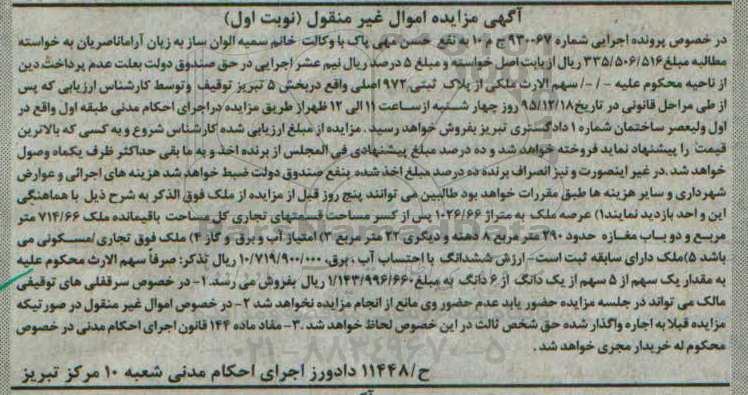 آگهی مزایده اموال غیر منقول (نوبت اول)
در خصوص پرونده اجرایی شماره ۹۳۰۰۶۷ ج ۱۰ به نفع حسن مهی پاک با وکالت خانم سمیه الوان ساز به زیان آراماناصریان به خواسته
مطالبه مبلغ ۳۳۵/۵۰۶/۵۱۶ ریال از بابت اصل خواسته و مبلغ ۵ درصد ریال نیم عشر اجرایی در حق صندوق دولت بعلت عدم پرداخت دین
از ناحیه محکوم علیه - /-/ سهم الارث ملکی از پلاک ثبتی ۹۷۲ اصلی واقع دربخش ۵ تبریز توقیف وتوسط کارشناس ارزیابی که پس
از طی مراحل قانونی در تاریخ ۹۵/۱۲/۱۸ روز چهار شنبه از ساعت ۱۱ الی ۱۲ ظهر از طریق مزایده دراجرای احکام مدنی طبقه اول واقع در
اول ولیعصر ساختمان شماره ۱ دادگستری تبریز بفروش خواهد رسید. مزایده از مبلغ ارزیابی شده کارشناس شروع و به کسی که بالاترین
قیمت را پیشنهاد نماید فروخته خواهد شد و ده درصد مبلغ پیشنهادی فی المجلس از برنده اخذ و به ما بقی حداکثر ظرف یکماه وصول
خواهد شد.در غیر اینصورت و نیز انصراف برنده ده درصد مبلغ اخذ شده بنفع صندوق دولت ضبط خواهد شد هزینه های اجرائی و عوارض
شهرداری و سایر هزینه ها طبق مقررات خواهد بود طالبین می توانند پنج روز قبل از مزایده از ملک فوق الذکر به شرح ذیل با هماهنگی
این و احد بازدید نمایند۱) عرصه ملک به متراژ ۱۰۲۶/۶۶ پس از کسر مساحت قسمتهای تجاری کل مساحت باقیمانده ملک ۷۱۴/۶۶ متر
مربع و دو باب مغازه حدود ۲۹۰ متر مربع ۸ دهنه و دیگری ۲۲ متر مربع ۳) امتیاز آب و برق و گاز ۴) ملک فوق تجاری/مسکونی می
باشد ۵)ملک دارای سابقه ثبت است- ارزش ششدانگ با احتساب آب ، برق، ۱۰/۷۱۹/۹۰۰/۰۰۰ ریال تذکر: صرفاً سهم الارث محکوم علیه
به مقدار یک سهم از ۵ سهم از یک دانگ از ۶ دانگ به مبلغ ۱/۱۴۳/۹۹۶/۶۶۰ ریال بفروش می رسد. ۱- در خصوص سرقفلی های توقیفی
مالک می تواند در جلسه مزایده حضور یابد عدم حضور وی مانع از انجام مزایده نخواهد شد ۲- در خصوص اموال غیر منقول در صورتیکه
مزایده قبلا به اجاره واگذار شده حق شخص ثالث در این خصوص لحاظ خواهد شد .۳- مفاد ماده ۱۴۴ قانون اجرای احکام مدنی در خصوص
محکوم له خریدار مجری خواهد شد .
ح/۱۱۴۴۸ دادورز اجرای احکام مدنی شعبه ۱۰ مرکز تبریز
ParsNamadData
۰۲۱-۸۸۳۴۹۶۷۰-۵